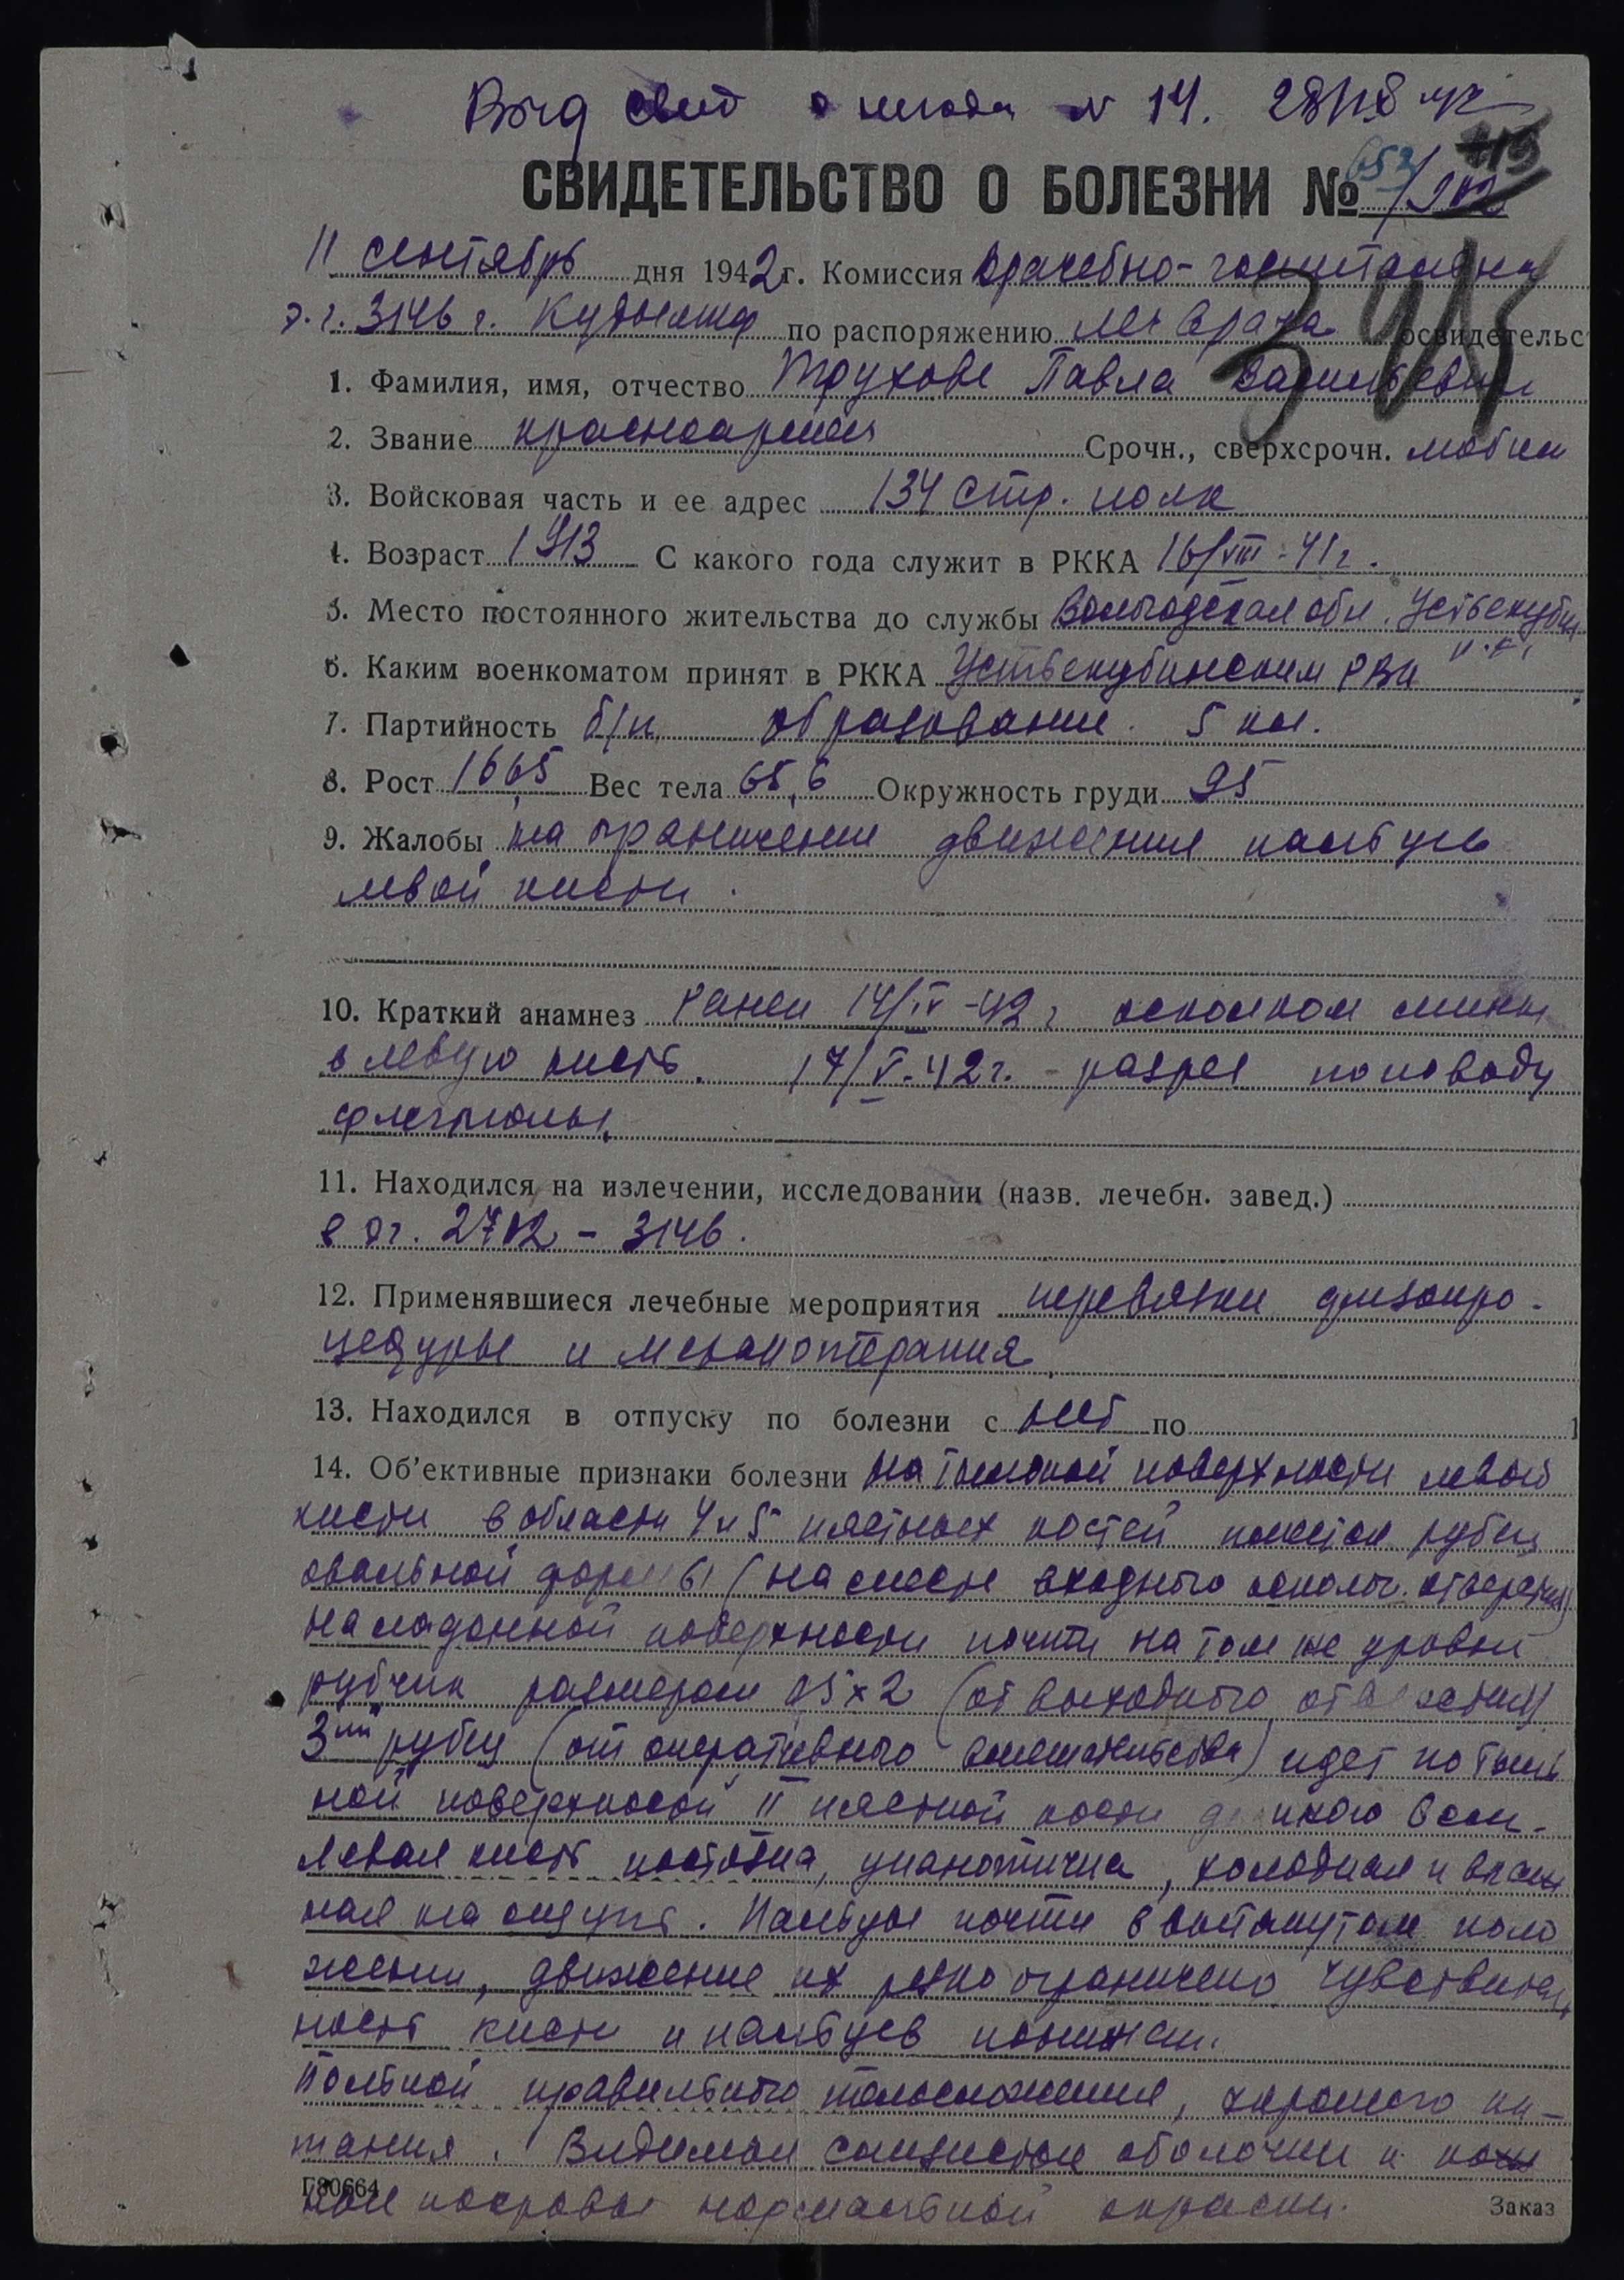 Выд свид о негодн № 14.
СВИДЕТЕЛЬСТВО О БОЛЕЗНИ №
11 сентябрь дня 1942 г. Комиссия врачебно-госпитальна
э.г. 3146 г. Кудымкар по распоряжению нач врача освидетельс
1. Фамилия, имя, отчество Трухове Павла Васильевич
2. Звание красноармеец Срочн., сверхсрочн. мобил
3. Войсковая часть и ее адрес 134 стр. полк
4. Возраст 1913 С какого года служит в РККА 16/VIII-41 г.
5. Место постоянного жительства до службы Вологодская обл. Устьекубин
6. Каким военкоматом принят в РККА Устьекубинским РВК
7. Партийность б/п образование 5 кл.
8. Рост 166,5 Вес тела 65,6 Окружность груди 95
9. Жалобы на ограничение движения пальцев
левой кисти.
10. Краткий анамнез Ранен 14/IV-42 г осколком мины
в левую кисть. 17/V-42 г. - разрез по поводу
флегмоны.
11. Находился на излечении, исследовании (назв. лечебн. завед.)
в эг. 2712 - 3146.
12. Применявшиеся лечебные мероприятия перевязки физиопро-
цедуры и механотерапия
13. Находился в отпуску по болезни с нет по
14. Об'ективные признаки болезни На тыльной поверхности левой
кисти в области 4 и 5 пястных костей имеется рубец
овальной формы (на месте входного осколоч. отверстия)
на ладонной поверхности почти на том же уровне
рубчик размером 0,5 x 2 (от выходного отверстия)
3ий рубец (от оперативного вмешательства) идет по тыль
ной поверхности II пястной кости
Левая кисть цианотична, холодная и влаж
ная на ощупь. Пальцы почти в вытянутом поло
жении, движение их резко ограничено чувствитель
ность кисти и пальцев понижен.
Больной правильного телосложения, хорошего пи-
тания. Видимые слизистые оболочки и кож
ные покровы нормальной окраски.
Г80664
Заказ